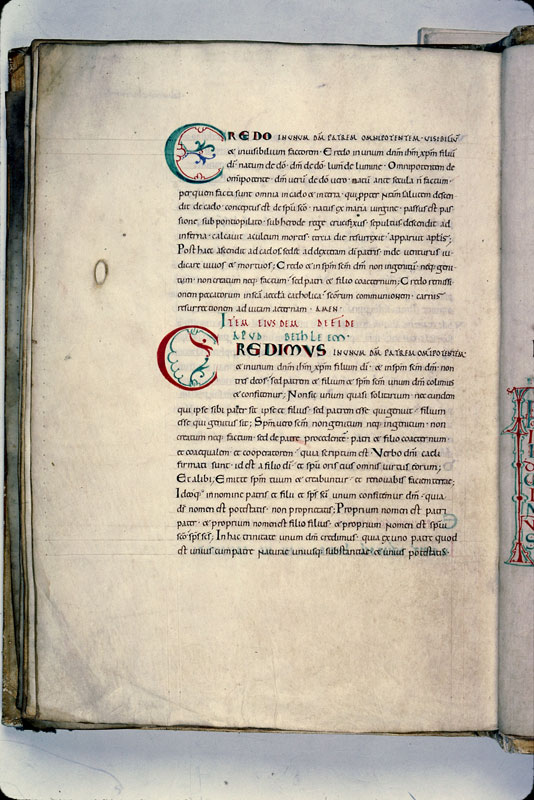 CREDO IN UNUM DM PATREM OMNIPOTENTEM· VISIBILIU
& invisibilium factorem· Credo in unum dnm ihm xpm filiu
di· natum de do· dm de do· lum de lumine· Omnipotentem de
omipotente· dm veru de do vero· natu ante secula n factum·
per quem facta sunt omnia in cælo & in terra· qui propter nram salutem descen
dit de cælo· conceptus est de spu sco· natus ex maria virgine· passus est pas
sione, sub pontio pilato· sub herode rege crucifixus· sepultus descendit ad
inferna· calcavit aculeum mortis· tercia die resurrexit· apparuit aplis;
Post hæc ascendit ad cælos sed& ad dexteram di patris· inde venturus iu
dicare vivos & mortuos; Credo & in spm scm dm non ingenitu neq; geni
tum· non creatum neq; factum· sed patri & filio coæternum; Credo remissi
onem peccatorum in sca æccla catholica· scorum communionem· carnis
resurrectionem ad vitam æternam· AMEN·
ITEM EIUSDEM DE FIDE
APUD BETHLEEM·
CREDIMUS IN UNUM DM PATREM OMNIPOTENTEM·
& in unum dnm ihm xpm filium di· & in spm scm dm· non
tres deos· sed patrem & filium & spm scm unum dm colimus
& confitemur; Non sic unum quasi solitarium· nec eundem
qui ipse sibi pater sit ipse & filius· sed patrem esse qui genuit· filium
esse qui genitus sit; Spm vero scm non genitum neq; ingenitum· non
creatum neq; factum· sed de patre procedente· patri & filio coæternum·
& coæqualem & cooperatorem· quia scriptum est· Verbo dni cæli
firmati sunt· id est a filio di· & spu oris eius omnis virtus eorum;
Et alibi; Emitte spm tuum & creabuntur· & renovabis faciem terræ;
Ideoq; in nomine patris & filii & sps sci unum confitemur dm· quia
ds nomen est potestatis· non proprietatis; Proprium nomen est patri
pater· & proprium nomen est filio filius· & proprium nomen est spui
sco sps scs; In hac trinitate unum dm credimus· quia ex uno patre quod
est unius cum patre naturæ uniusq; substantiæ & unius potestatis·